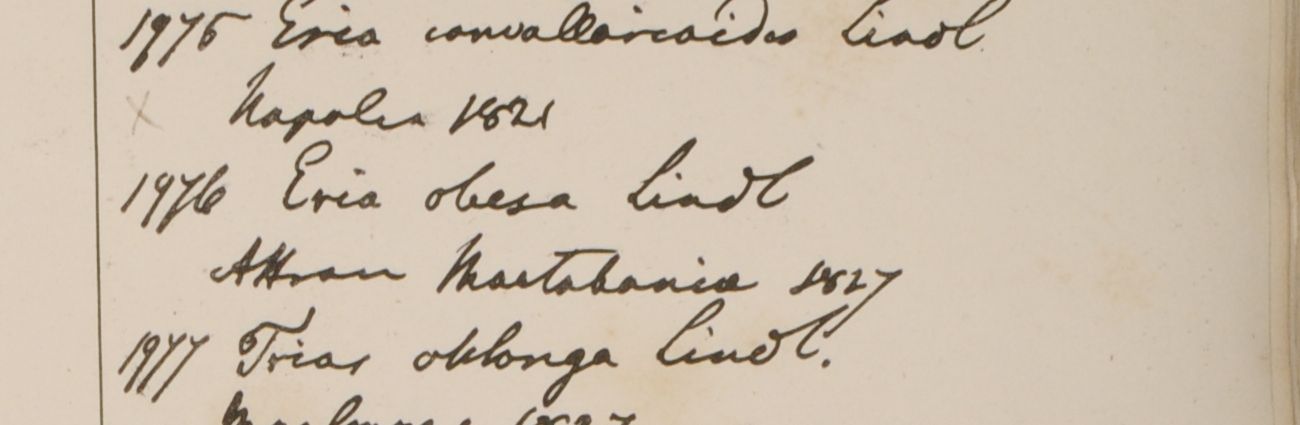 1975 Eria convallarioides Lindl
Napalia 1821
1976 Eria obesa Lindl
Attran Martabaniæ 1827
1977 Trias oblonga Lindl.
1827